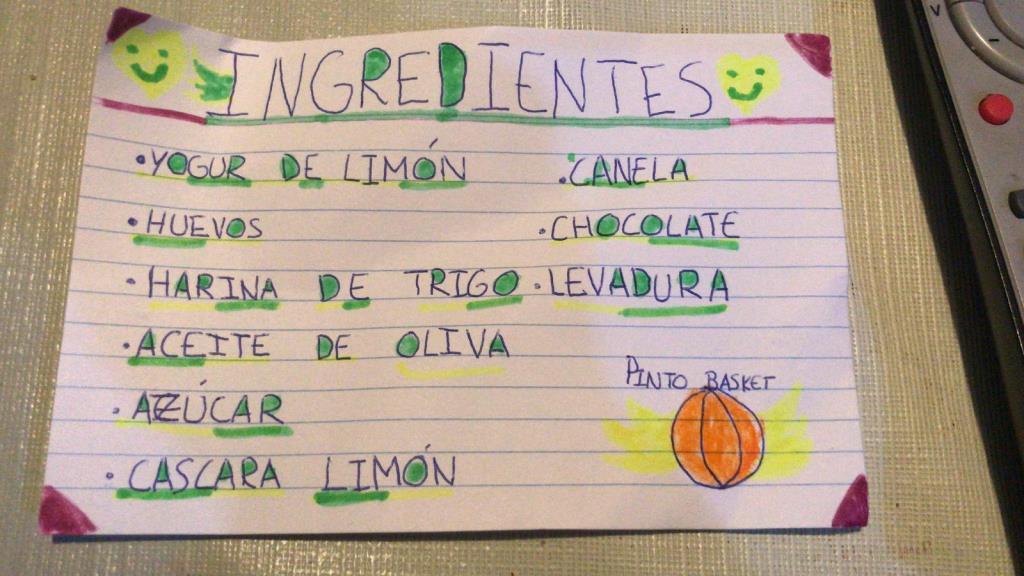 INGREDIENTES
• YOGUR DE LIMÓN
• HUEVOS
• HARINA DE TRIGO
• ACEITE DE OLIVA
• AZÚCAR
• CASCARA LIMÓN
• CANELA
• CHOCOLATE
• LEVADURA
PINTO BASKET